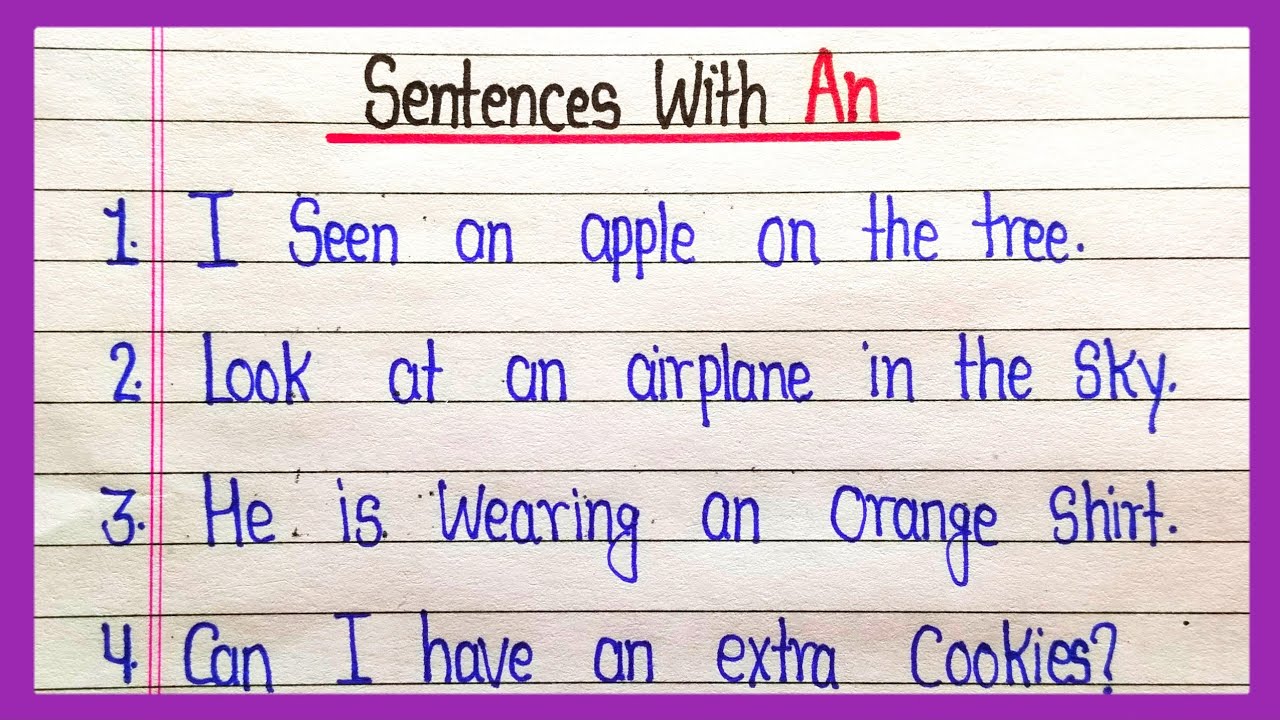 Sentences With An
1. I Seen an apple on the tree.
2. Look at an airplane in the Sky.
3. He is Wearing an Orange Shirt.
4. Can I have an extra Cookies?